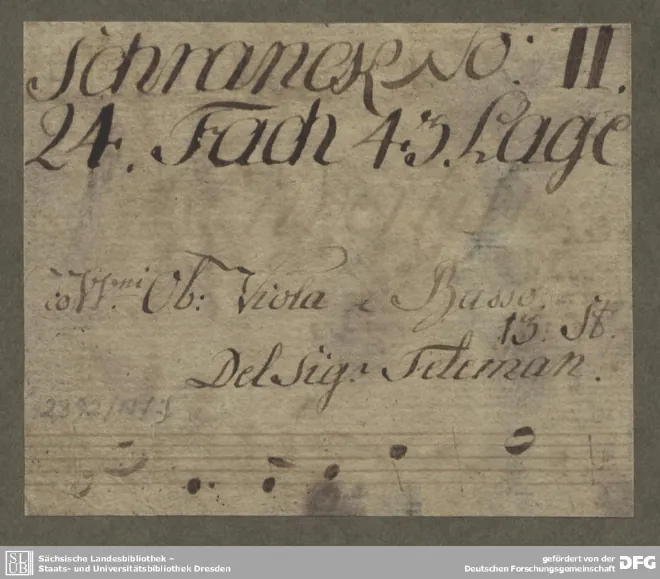 Schranck No: II.
24. Fach 43. Lage
co VV.ni Ob: Viola e Basso.
13. St.
Del Sig.r Teleman.
SLUB
Sächsische Landesbibliothek –
Staats- und Universitätsbibliothek Dresden
gefördert von der
Deutschen Forschungsgemeinschaft
DFG